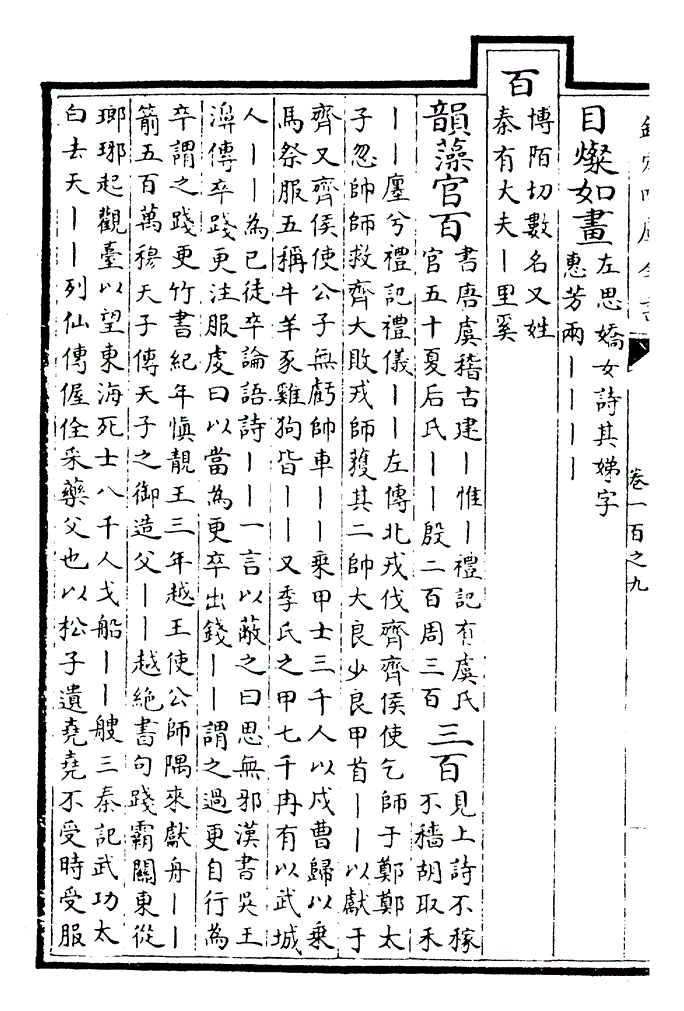 欽定四庫全書
卷一百之九
目燦如畫
左思嬌女詩其娣字
惠芳兩丨丨丨丨
百
博陌切數名又姓
秦有大夫丨里奚
韻藻官百
書唐虞稽古建丨惟丨禮記有虞氏
官五十夏后氏丨丨殷二百周三百
三百
見上詩不稼
不穡胡取禾
丨丨廛兮禮記禮儀丨丨左傳北戎伐齊齊侯使乞師于鄭鄭太
子忽帥師救齊大敗戎師獲其二帥大良少良甲首丨丨以獻于
齊又齊侯使公子無虧帥車丨丨乘甲士三千人以戍曹歸以乘
馬祭服五稱牛羊豕雞狗皆丨丨又季氏之甲七千冉有以武城
人丨丨為已徒卒論語詩丨丨一言以蔽之曰思無邪漢書吳王
濞傳卒踐更注服虔曰以當為更卒出錢丨丨謂之過更自行為
卒謂之踐更竹書紀年慎靚王三年越王使公師隅來獻舟丨丨
箭五百萬穆天子傳天子之御造父丨丨越絶書句踐霸關東從
瑯琊起觀臺以望東海死士八千人戈船丨丨艘三秦記武功太
白去天丨丨列仙傳偓佺采藥父也以松子遺堯堯不受時受服